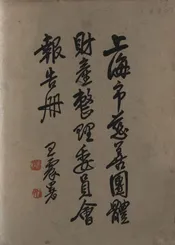 上海市慈善團體
財產整理委員會
報告冊
王震署